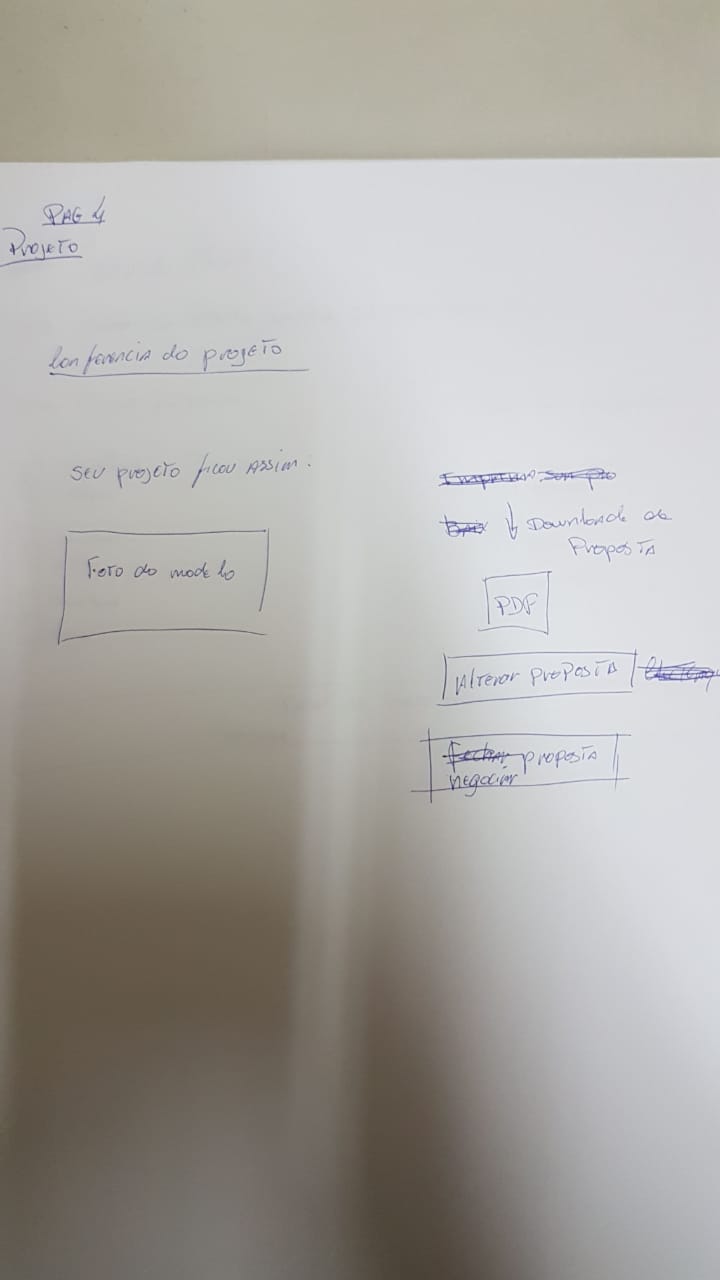 PAG 4
Projeto
Conferencia do projeto
Seu projeto ficou assim:
Foto do modelo
↓ Download da
Proposta
PDF
Alterar proposta
Fechar proposta
negociar